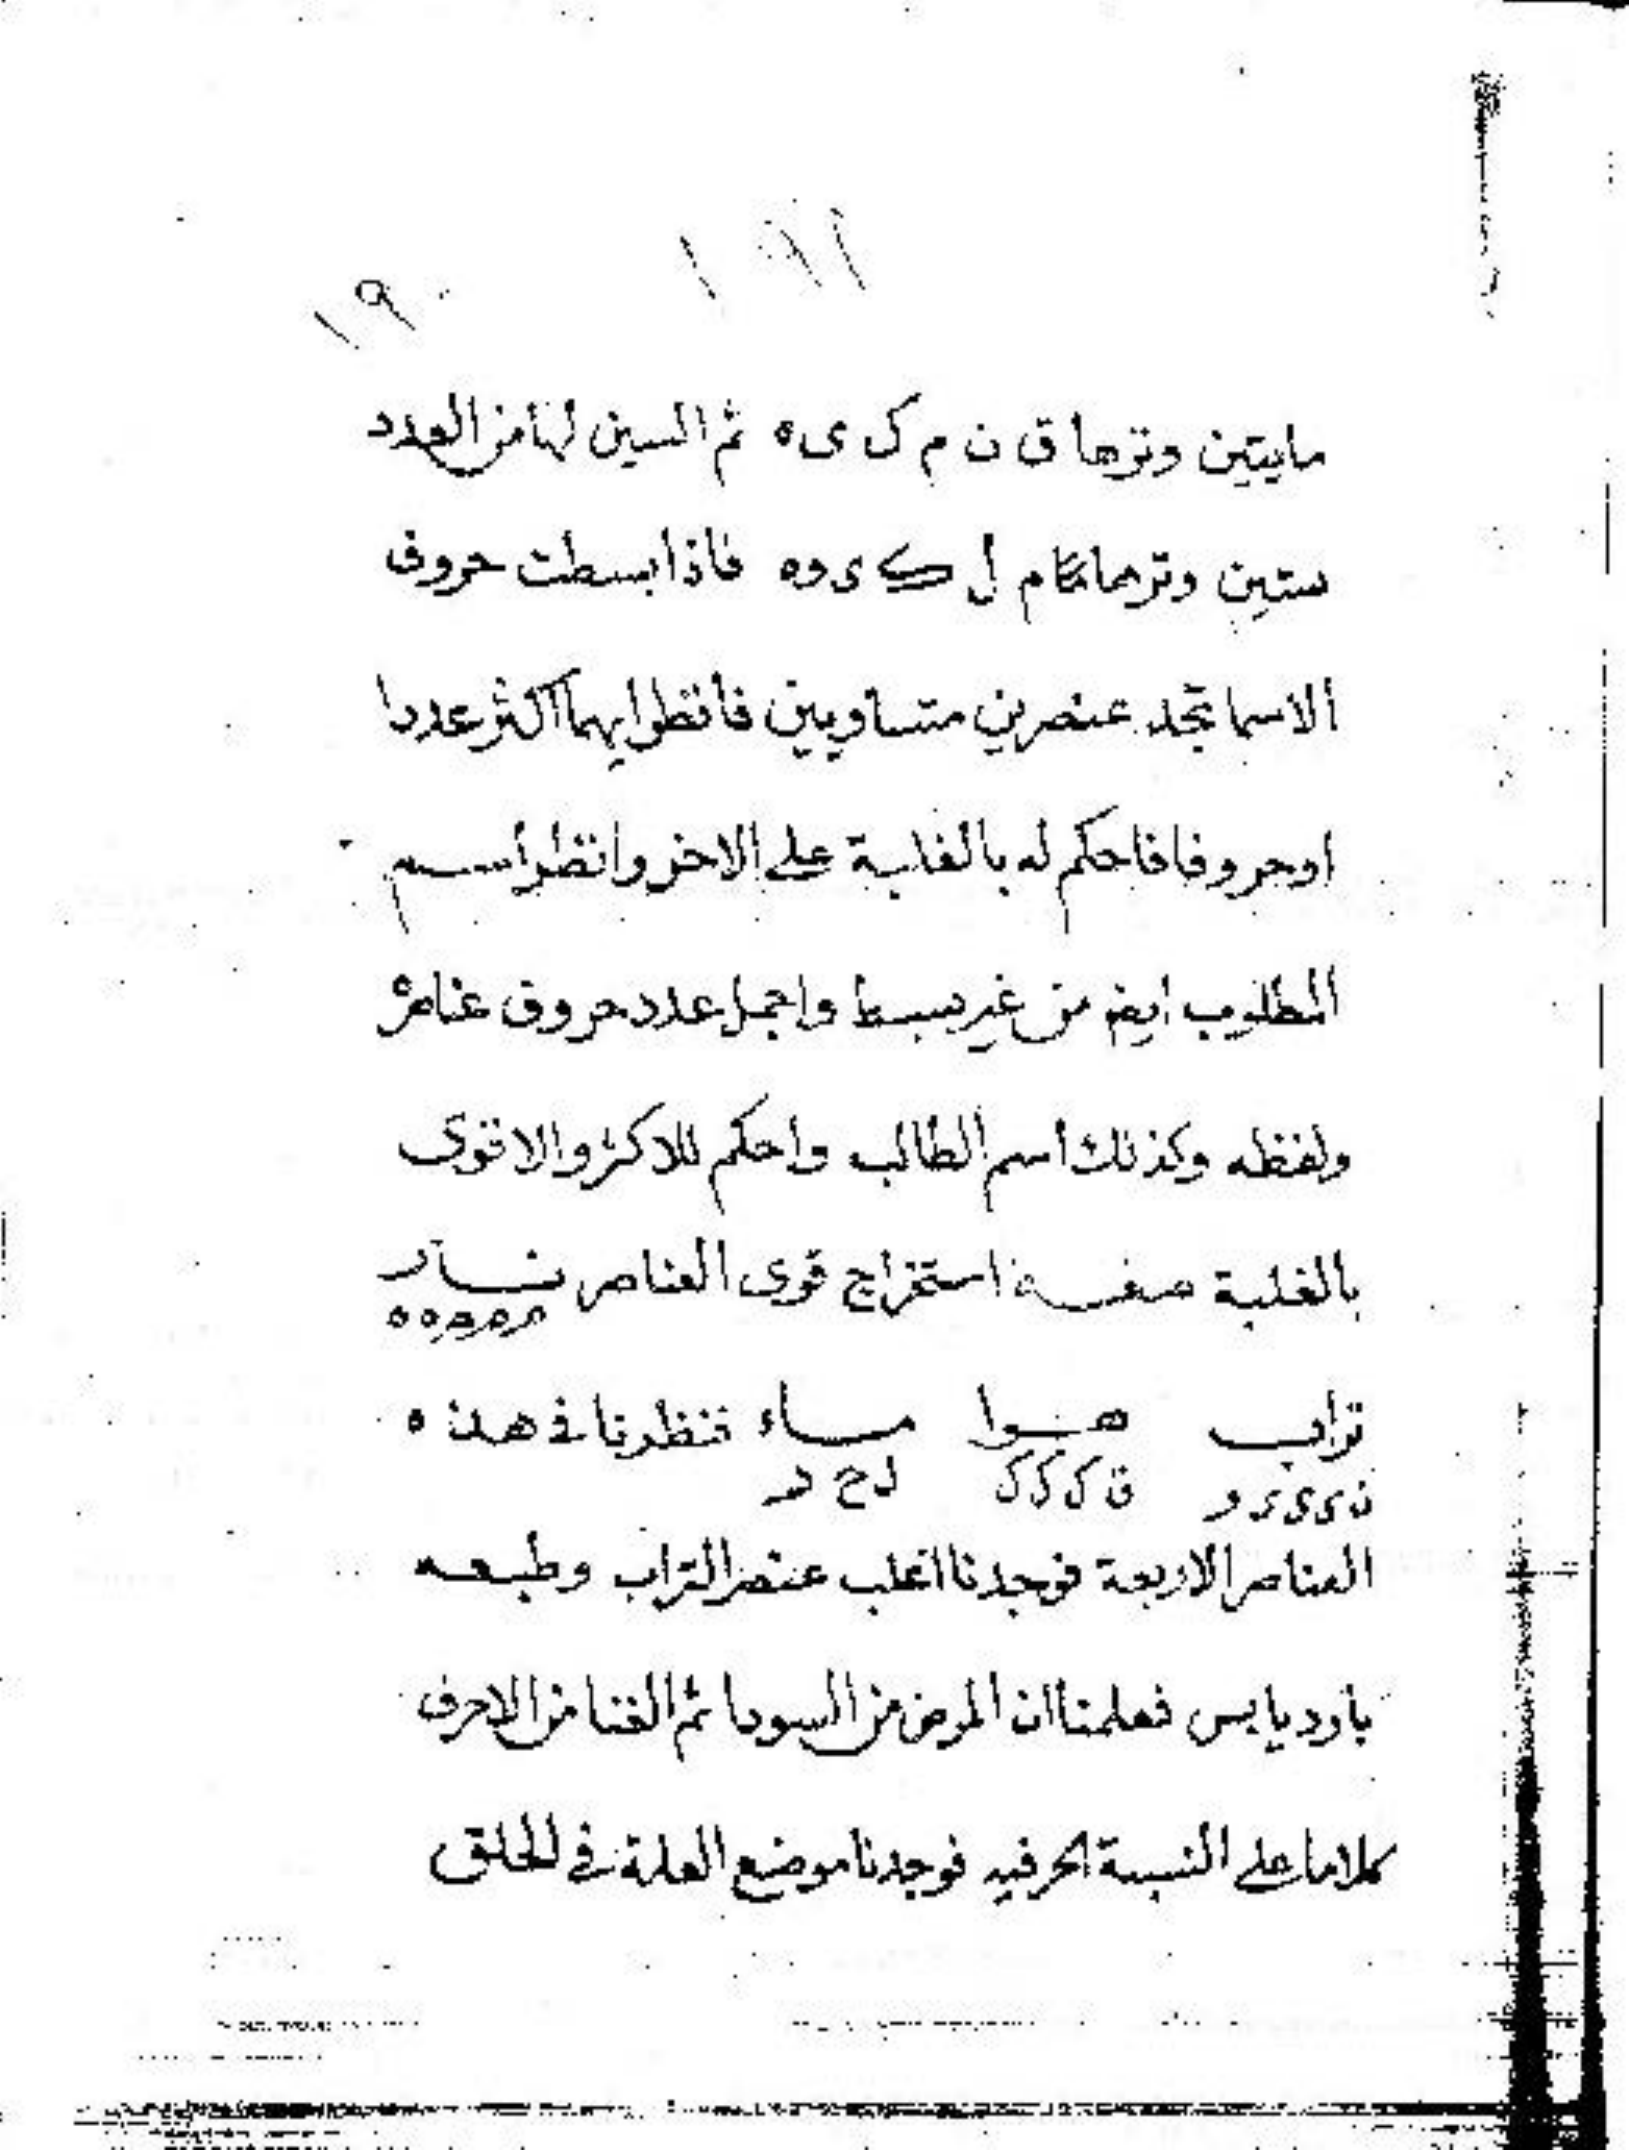 ١٩٠
مايتين وترها ق ن م ك ى ه ثم السين لها من العدد
ستين وترها م ل ك ى و ه فاذا بسطت حروف
الاسما تجد عنصرين متساويين فانظر ايهما اكثر عددا
او حروفا فاحكم له بالغلبة على الاخر وانظر اسم
المطلوب ايضم من غير بسط واجمل عدد حروف عناصره
ولفظه وكذلك اسم الطالب واحكم للاكثر والاقوى
بالغلبة صفة استخراج قوى العناصر نار
تراب هوا ماء فنظرنا في هذه
ن ى ى ى و ق ك ك ك ل ح د
العناصر الاربعة فوجدنا اغلب عنصر التراب وطبعه
بارد يابس فعلمنا ان المرض من السودا ثم الفنا من الاحرف
كلاما على النسبة الحرفيه فوجدنا موضع العلة في الحلق